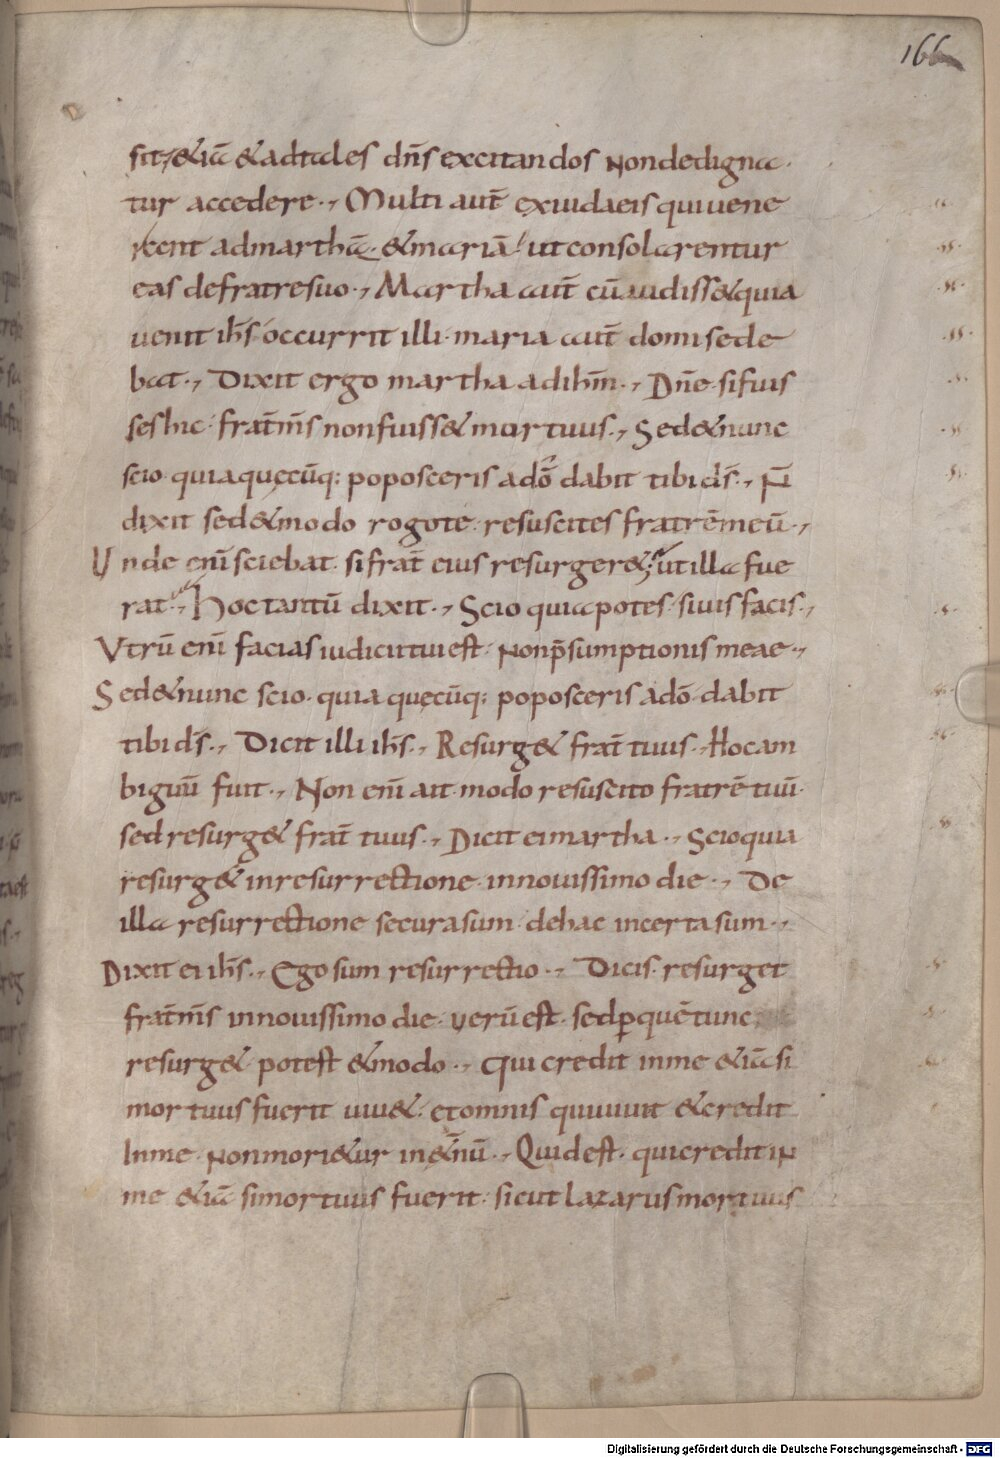 166
sit, &iā & ad tales dn̄s excitandos Non dedigna·
tur accedere·, Multi aut̄ ex iudaeis qui uene
rant ad marthā· & mariā· ut consolarentur
eas de fratre suo·, Martha aut̄ cū audiss& quia
uenit ih̄s occurrit illi· maria aut̄ domi sede
bat·, Dixit ergo martha ad ihm̄·, Dn̄e· si fuis
ses hic· frat̄ m̄s non fuiss& mortuus·, Sed & nunc
scio· quia quęcūq; poposceris a dō dabit tibi ds̄·, N̄
dixit sed & modo rogo te· resuscites fratrē meū·,
Unde eni̅ sciebat· si frat̄ eius resurger& ut illa fue
rat·, Hoc tantū dixit·, Scio quia potes· si uis facis·,
Vtrū eni̅ facias iudicii tui est· Non p̄sumptionis meae·,
Sed & nunc scio· quia quęcūq; poposceris a dō· dabit
tibi ds̄·, Dicit illi ih̄s·, Resurg& frat̄ tuus·, Hoc am
biguū fuit·, Non eni̅ ait· modo resuscito fratrē tuū·
sed resurg& frat̄ tuus·, Dicit ei martha·, Scio quia
resurg& in resurrectione· in nouissimo die·, De
illa resurrectione secura sum· de hac incerta sum·,
Dixit ei ih̄s·, Ego sum resurrectio·, Dicis· resurget
frat̄ m̄s in nouissimo die· uerū est· sed p̱ quē tunc
resurg& potest & modo·, Qui credit in me &iā si
mortuus fuerit uiu&· et omnis qui uiuit & credit
In me· Non mori&ur in &n̄ū·, Quid est· qui credit iN
me &iā si mortuus fuerit· sicut Lazarus mortuus
Digitalisierung gefördert durch die Deutsche Forschungsgemeinschaft - DFG